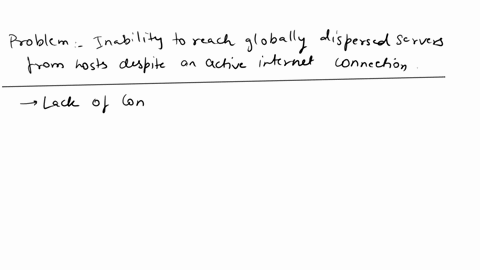 Problem:- Inability to reach globally dispersed servers
from hosts despite an active internet connection.
→ Lack of Con